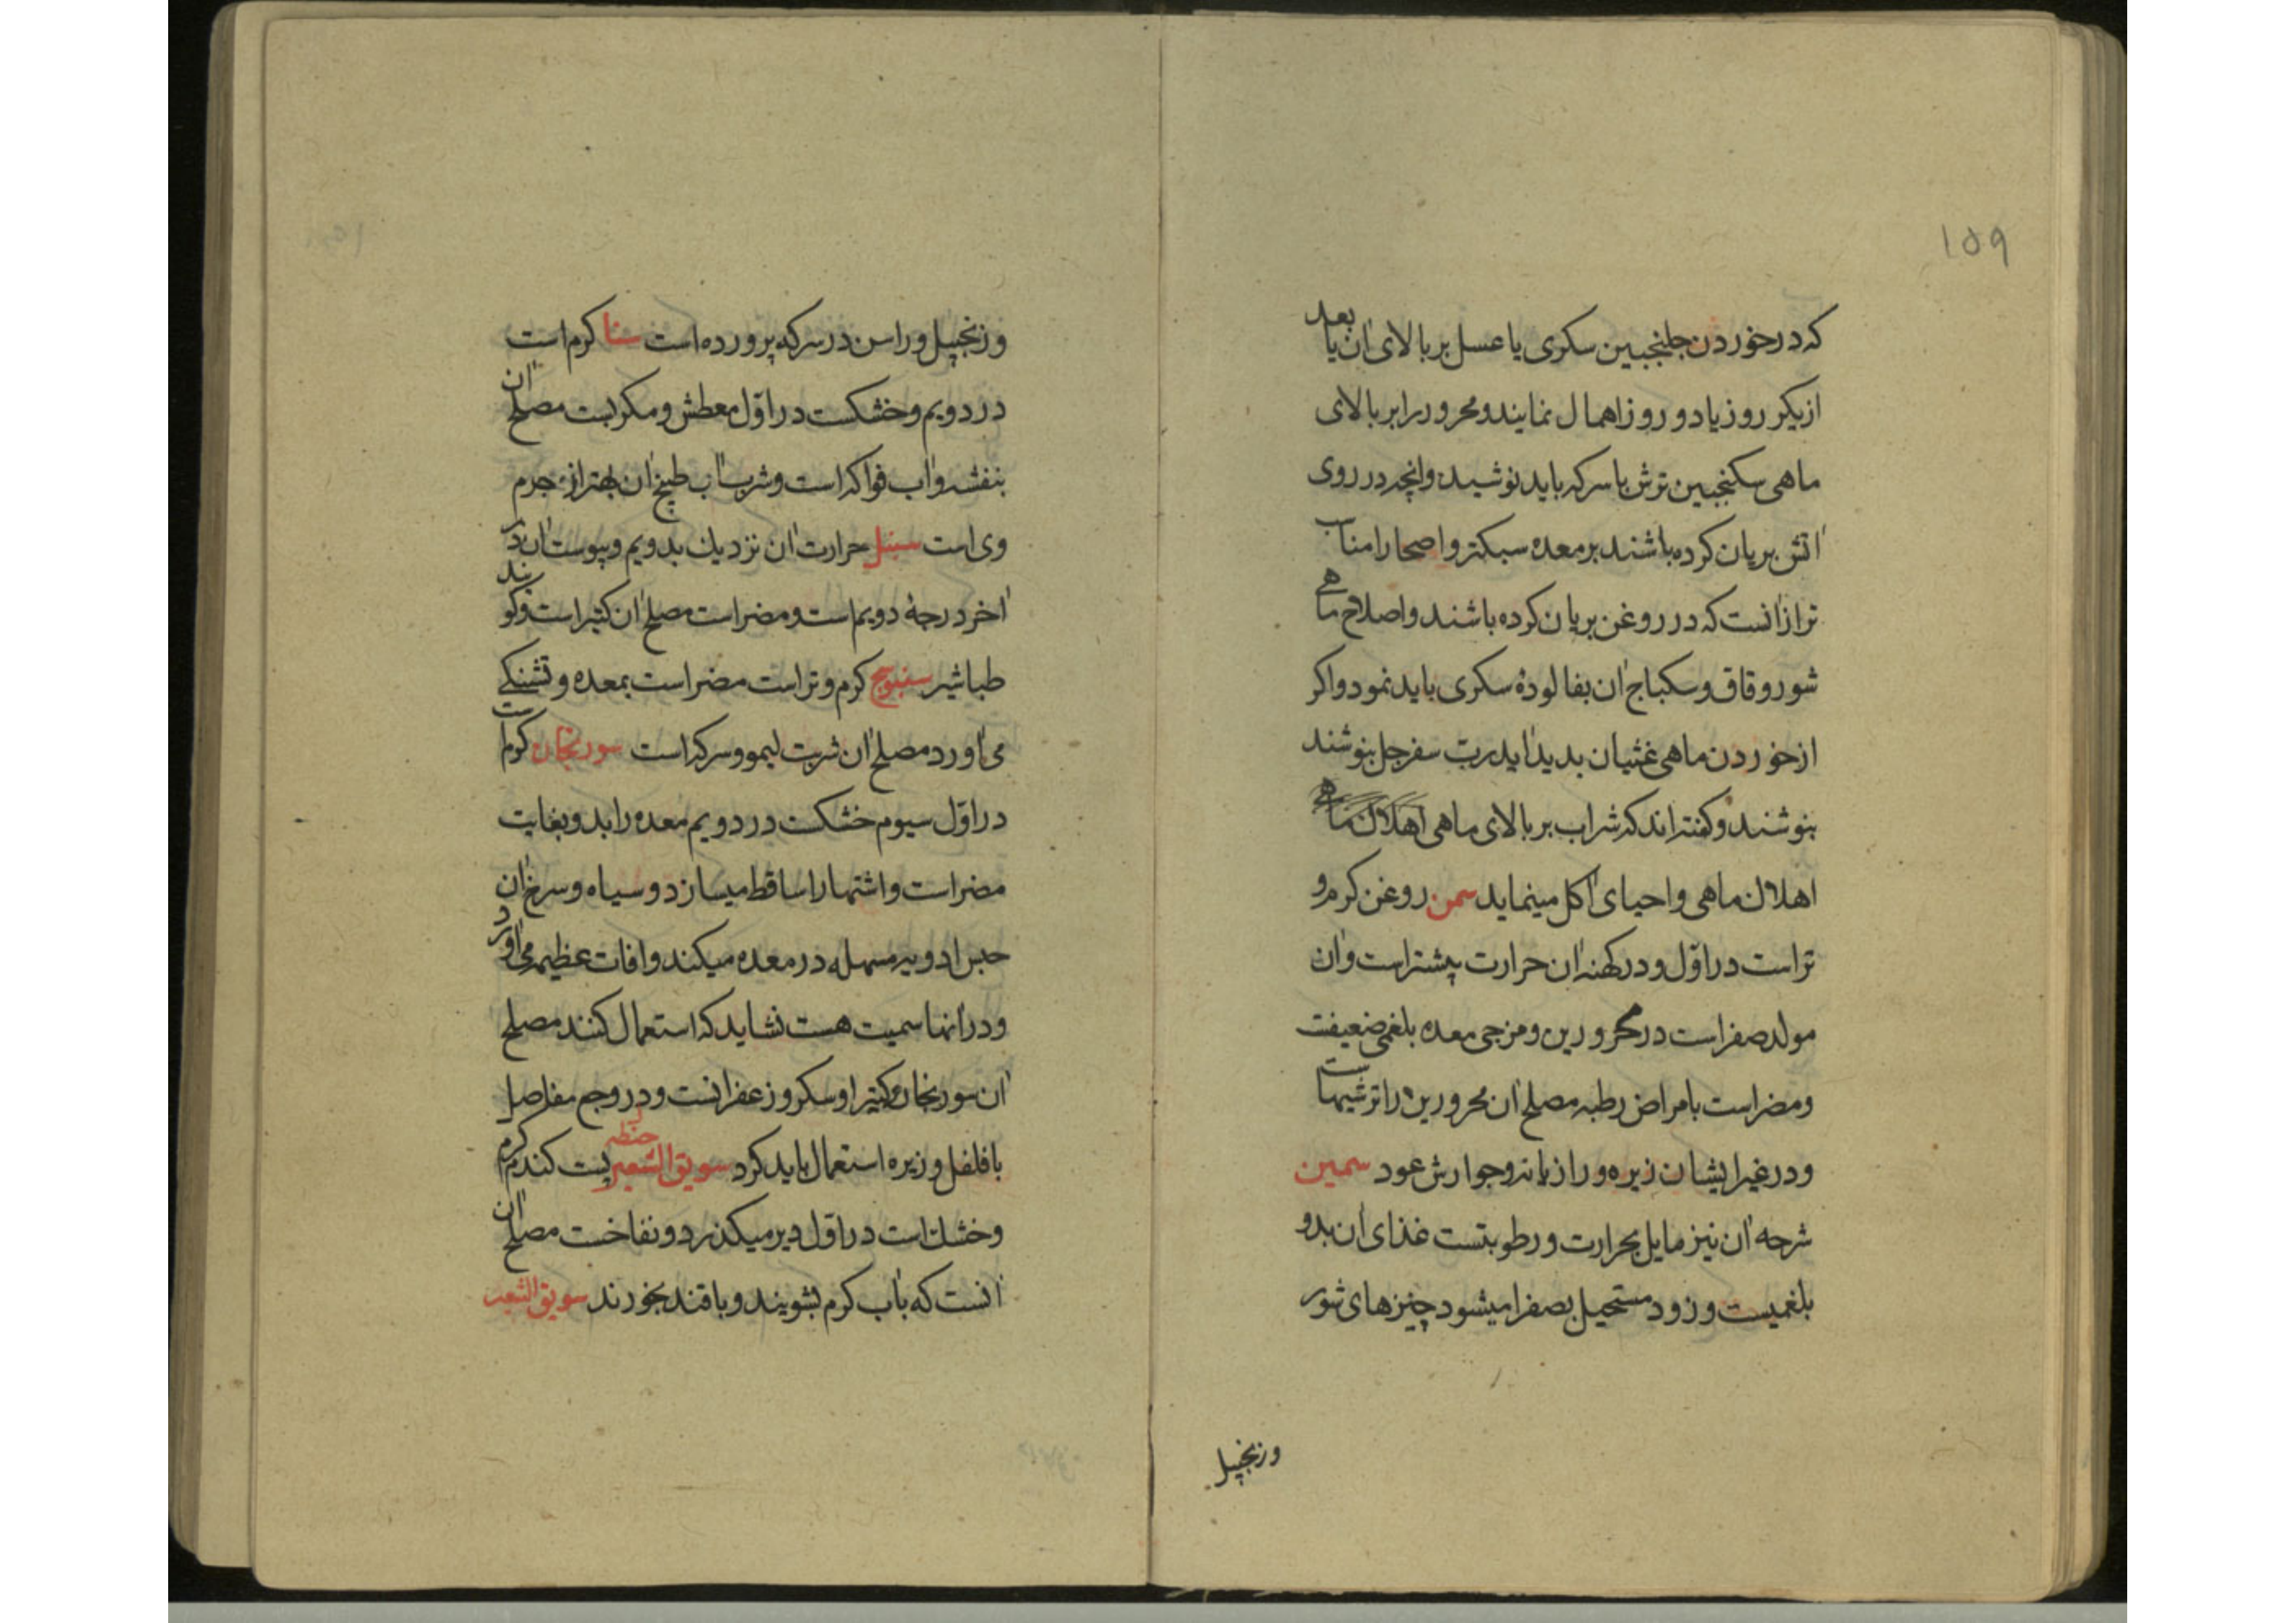 ۱۵۹
که در خوردن جلنجبین سکری یا عسل بر بالای آن یا بعد
از یکر روز یا دو روز اهمال نمایند و محرور را بر بالای
ماهی سکنجبین ترش با سرکه باید نوشید و انچه در روی
آتش بریان کرده باشند بر معده سبکتر و اصحا را مناسب
تر از آنست که در روغن بریان کرده باشند و اصلاح ماهی
شور و قاق و سکباج آن بفالودهٔ سکری باید نمود و اکر
از خوردن ماهی غثیان بدید آید رب سفرجل بنوشند
بنوشند و کفته اند که شراب بر بالای ماهی اهلاک ماهی
اهلاک ماهی و احیای آکل مینماید سمن روغن کرم و
تر است در اوّل و در کهنه آن حرارت بیشتر است و آن
مولد صفر است در محرورین و مرخی معده بلغمی ضعیفت
و مضر است بامراض رطبه مصلح آن محرورین را ترشیهاست
و در غیر ایشان زیره و رازیانه و جوارش عود سمین
شرحه آن نیز مایل بحرارت و رطوبتست غذای آن بدو
بلغمیست و زود مستحیل بصفرا میشود چیزهای شور
و زنجپیل
و زنجپیل و راسن در سرکه پرورده است سنا کرم است
در دویم و خشکست در اوّل معطش و مکربست مصلح آن
بنفشه و آب فواکه است و شرب آب طبیخ آن بهتر از جرم
وی است سنبل حرارت آن نزدیک بدویم و یبوست آن در
آخر درجهٔ دویم است و مضر است مصلح آن کثیر است و کویند
طباشیر سنبوسج کرم و تر است مضر است بمعده و تشنکی
می آورد مصلح آن شربت لیمو و سرکه است سورنجان کرم است
در اوّل سیوم خشکست در دویم معده را بد و بغایت
مضر است و اشتها را ساقط میسازد و سیاه و سرخ آن
حبس ادویه مسهله در معده میکند و آفات عظیم می آورد
و در آنها سمیت هست نشاید که استعمال کنند مصلح
آن سورنجان کتیرا و سکر و زعفرانست و در وجع مفاصل
با فلفل و زیره استعمال باید کرد سویق الشعیر حنطه پست کندم کرم
و خشک است در اوّل دیر میکذرد و نفاخست مصلح آن
آنست که بآب کرم بشویند و با قند بخورند سویق الشعیر